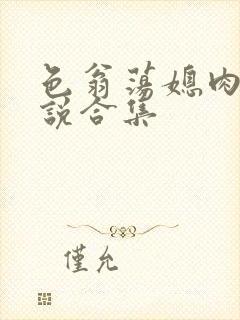 色翁荡媳肉
说合集
僅允